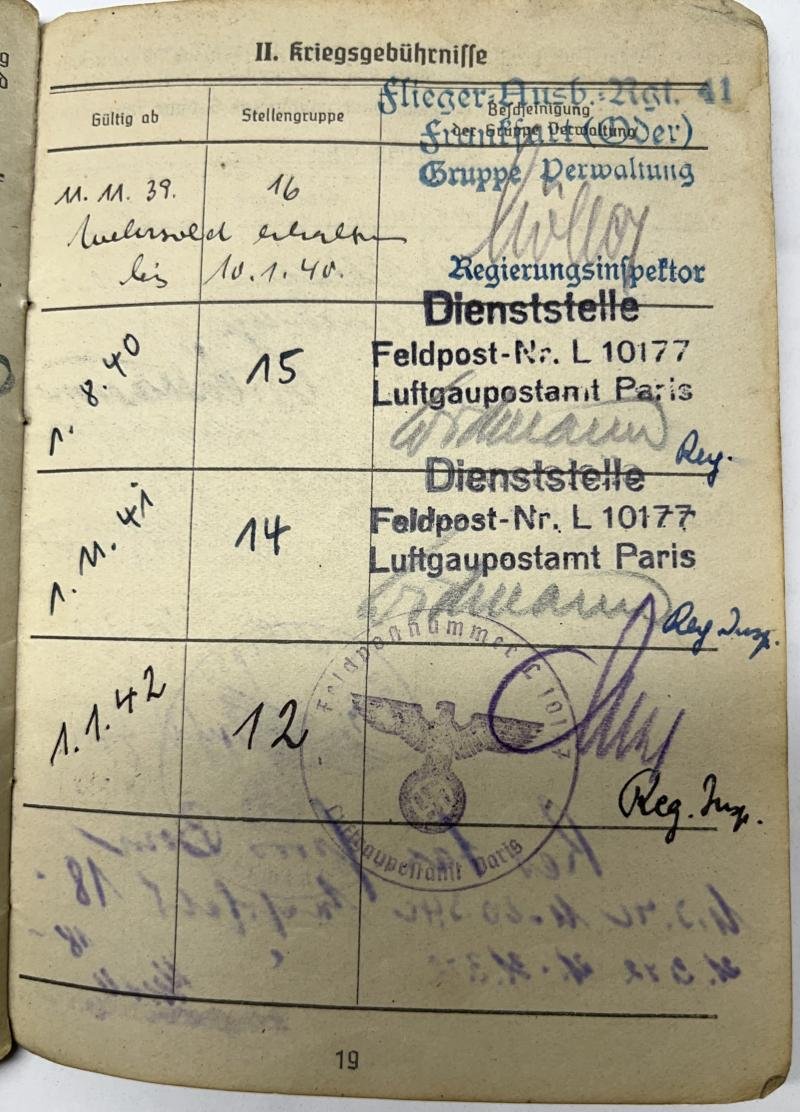 II. Kriegsgebührnisse
Gültig ab
Stellengruppe
Bescheinigung
der Gruppe Verwaltung
Flieger-Ausb.-Rgt. 41
Frankfurt (Oder)
Gruppe Verwaltung
11. 11. 39.
16
Wehrsold erhalten
bis 10.1.40.
Regierungsinspektor
1. 8.40
15
Dienststelle
Feldpost-Nr. L 10177
Luftgaupostamt Paris
Reg.
1. 11. 41
14
Dienststelle
Feldpost-Nr. L 10177
Luftgaupostamt Paris
Reg Insp.
1.1.42
12
Feldpostnummer L 10177
Luftgaupostamt Paris
Reg. Insp.
19